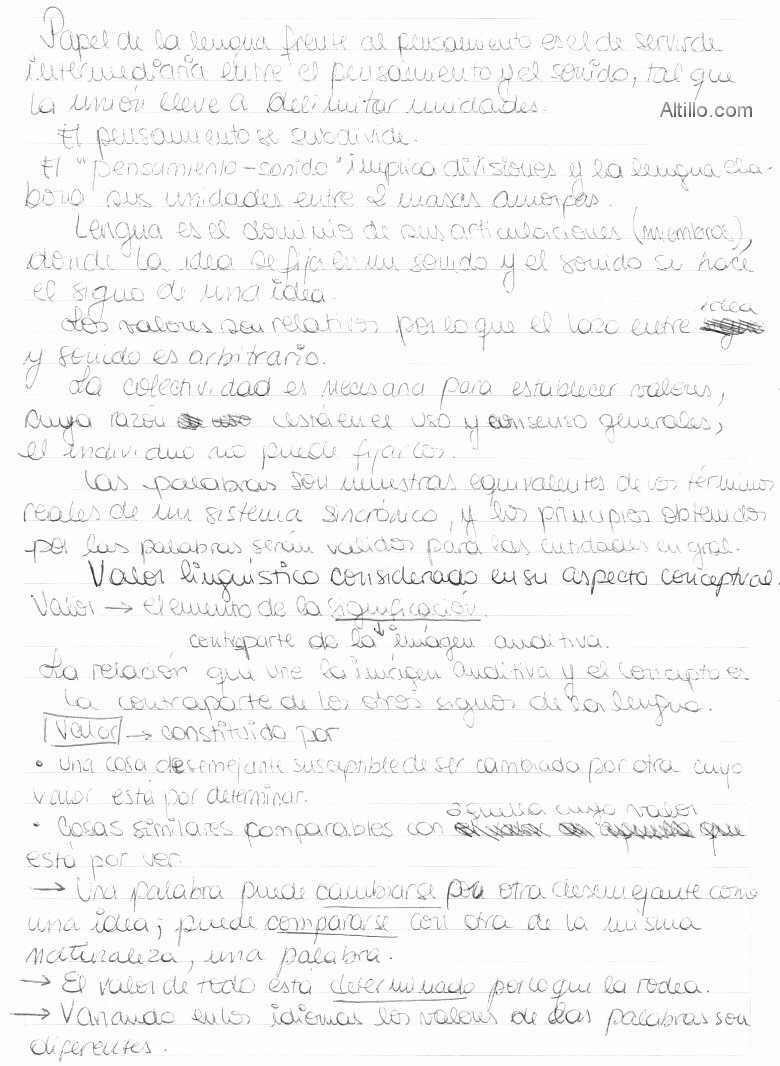 Papel de la lengua frente al pensamiento es el de servir de
intermediaria entre el pensamiento y el sonido, tal que
la unión lleve a delimitar unidades.
Altillo.com
El pensamiento se subdivide.
El "pensamiento-sonido" implica divisiones y la lengua ela-
bora sus unidades entre 2 masas amorfas.
Lengua es el dominio de sus articulaciones (miembros),
donde la idea se fija en un sonido y el sonido se hace
el signo de una idea.
Los valores son relativos por lo que el lazo entre idea
y sonido es arbitrario.
La colectividad es necesaria para establecer valores,
cuya razón está en el uso y consenso generales,
el individuo no puede fijarlos.
Las palabras son muestras equivalentes de los términos
reales de un sistema sincrónico, y los principios obtenidos
por las palabras serán validos para las entidades en gral.
Valor linguístico considerado en su aspecto conceptual.
Valor → elemento de la significación.
contraparte de la imágen auditiva.
La relación que une la imágen auditiva y el concepto es
la contraparte de los otros signos de la lengua.
Valor → constituido por
• una cosa desemejante susceptible de ser cambiada por otra cuyo
valor está por determinar.
• Cosas similares comparables con aquella cuyo valor
está por ver.
→ Una palabra puede cambiarse por otra desemejante como
una idea; puede compararse con otra de la misma
naturaleza, una palabra.
→ El valor de todo está determinado por lo que la rodea.
→ Variando en los idiomas los valores de las palabras son
diferentes.